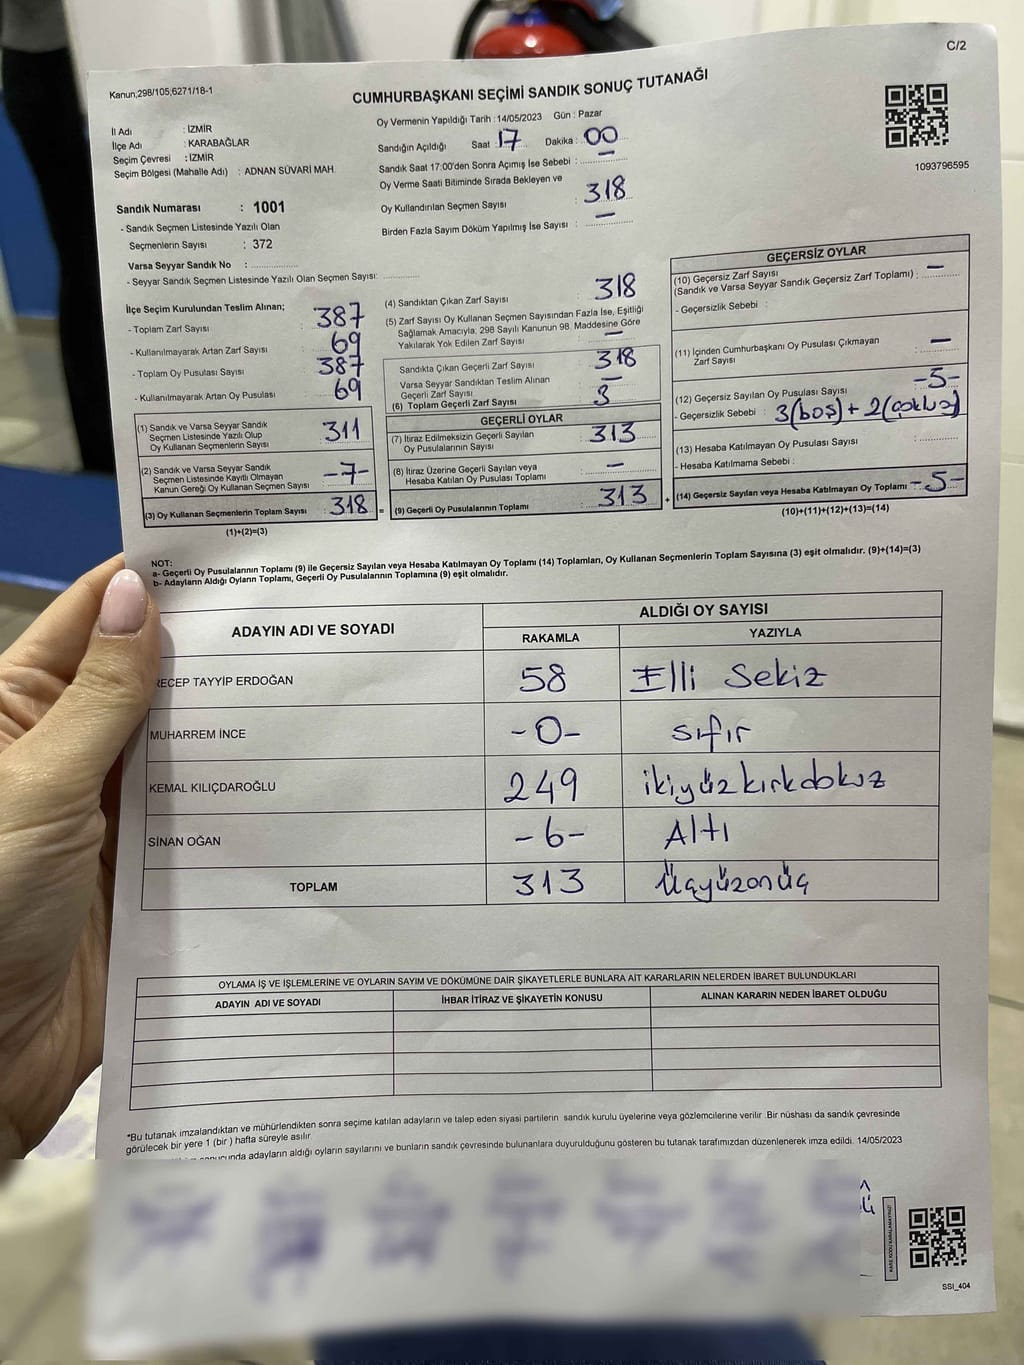 C/2
Kanun,298/105,6271/18-1
CUMHURBAŞKANI SEÇİMİ SANDIK SONUÇ TUTANAĞI
İl Adı : İZMİR
İlçe Adı : KARABAĞLAR
Seçim Çevresi : İZMİR
Seçim Bölgesi (Mahalle Adı) : ADNAN SÜVARİ MAH
Oy Vermenin Yapıldığı Tarih : 14/05/2023 Gün : Pazar
Sandığın Açıldığı Saat : 17 Dakika : 00
Sandık Saat 17:00'den Sonra Açımış İse Sebebi : —
Oy Verme Saati Bitiminde Sırada Bekleyen ve
Oy Kullandırılan Seçmen Sayısı : 318
Birden Fazla Sayım Döküm Yapılmış İse Sayısı : —
1093796595
Sandık Numarası : 1001
- Sandık Seçmen Listesinde Yazılı Olan
Seçmenlerin Sayısı : 372
Varsa Seyyar Sandık No :
- Seyyar Sandık Seçmen Listesinde Yazılı Olan Seçmen Sayısı:
İlçe Seçim Kurulundan Teslim Alınan;
- Toplam Zarf Sayısı : 387
- Kullanılmayarak Artan Zarf Sayısı : 69
- Toplam Oy Pusulası Sayısı : 387
- Kullanılmayarak Artan Oy Pusulası : 69
(1) Sandık ve Varsa Seyyar Sandık
Seçmen Listesinde Yazılı Olup
Oy Kullanan Seçmenlerin Sayısı : 311
(2) Sandık ve Varsa Seyyar Sandık
Seçmen Listesinde Kayıtlı Olmayan
Kanun Gereği Oy Kullanan Seçmen Sayısı : -7-
(3) Oy Kullanan Seçmenlerin Toplam Sayısı : 318 =
(1)+(2)=(3)
(4) Sandıktan Çıkan Zarf Sayısı : 318
(5) Zarf Sayısı Oy Kullanan Seçmen Sayısından Fazla İse, Eşitliği
Sağlamak Amacıyla; 298 Sayılı Kanunun 98. Maddesine Göre
Yakılarak Yok Edilen Zarf Sayısı : —
Sandıkta Çıkan Geçerli Zarf Sayısı : 318
Varsa Seyyar Sandıktan Teslim Alınan
Geçerli Zarf Sayısı : —
(6) Toplam Geçerli Zarf Sayısı : 3
GEÇERLİ OYLAR
(7) İtiraz Edilmeksizin Geçerli Sayılan
Oy Pusulalarının Sayısı : 313
(8) İtiraz Üzerine Geçerli Sayılan veya
Hesaba Katılan Oy Pusulası Toplamı : —
(9) Geçerli Oy Pusulalarının Toplamı : 313 +
GEÇERSİZ OYLAR
(10) Geçersiz Zarf Sayısı
(Sandık ve Varsa Seyyar Sandık Geçersiz Zarf Toplamı) : —
- Geçersizlik Sebebi :
(11) İçinden Cumhurbaşkanı Oy Pusulası Çıkmayan
Zarf Sayısı : —
(12) Geçersiz Sayılan Oy Pusulası Sayısı : -5-
- Geçersizlik Sebebi : 3(boş) + 2(çoklu)
(13) Hesaba Katılmayan Oy Pusulası Sayısı :
- Hesaba Katılmama Sebebi :
(14) Geçersiz Sayılan veya Hesaba Katılmayan Oy Toplamı : -5-
(10)+(11)+(12)+(13)=(14)
NOT:
a- Geçerli Oy Pusulalarının Toplamı (9) ile Geçersiz Sayılan veya Hesaba Katılmayan Oy Toplamı (14) Toplamları, Oy Kullanan Seçmenlerin Toplam Sayısına (3) eşit olmalıdır. (9)+(14)=(3)
b- Adayların Aldığı Oyların Toplamı, Geçerli Oy Pusulalarının Toplamına (9) eşit olmalıdır.
ADAYIN ADI VE SOYADI ALDIĞI OY SAYISI
RAKAMLA YAZIYLA
RECEP TAYYİP ERDOĞAN 58 Elli Sekiz
MUHARREM İNCE -0- sıfır
KEMAL KILIÇDAROĞLU 249 ikiyüz kırkdokuz
SİNAN OĞAN -6- Altı
TOPLAM 313 Üçyüzonüç
OYLAMA İŞ VE İŞLEMLERİNE VE OYLARIN SAYIM VE DÖKÜMÜNE DAİR ŞİKAYETLERLE BUNLARA AİT KARARLARIN NELERDEN İBARET BULUNDUKLARI
ADAYIN ADI VE SOYADI İHBAR İTİRAZ VE ŞİKAYETİN KONUSU ALINAN KARARIN NEDEN İBARET OLDUĞU
*Bu tutanak imzalandıktan ve mühürlendikten sonra seçime katılan adayların ve talep eden siyasi partilerin sandık kurulu üyelerine veya gözlemcilerine verilir. Bir nüshası da sandık çevresinde
görülecek bir yere 1 (bir ) hafta süreyle asılır.
adayların aldığı oyların sayılarını ve bunların sandık çevresinde bulunanlara duyurulduğunu gösteren bu tutanak tarafımızdan düzenlenerek imza edildi. 14/05/2023
SSI_404